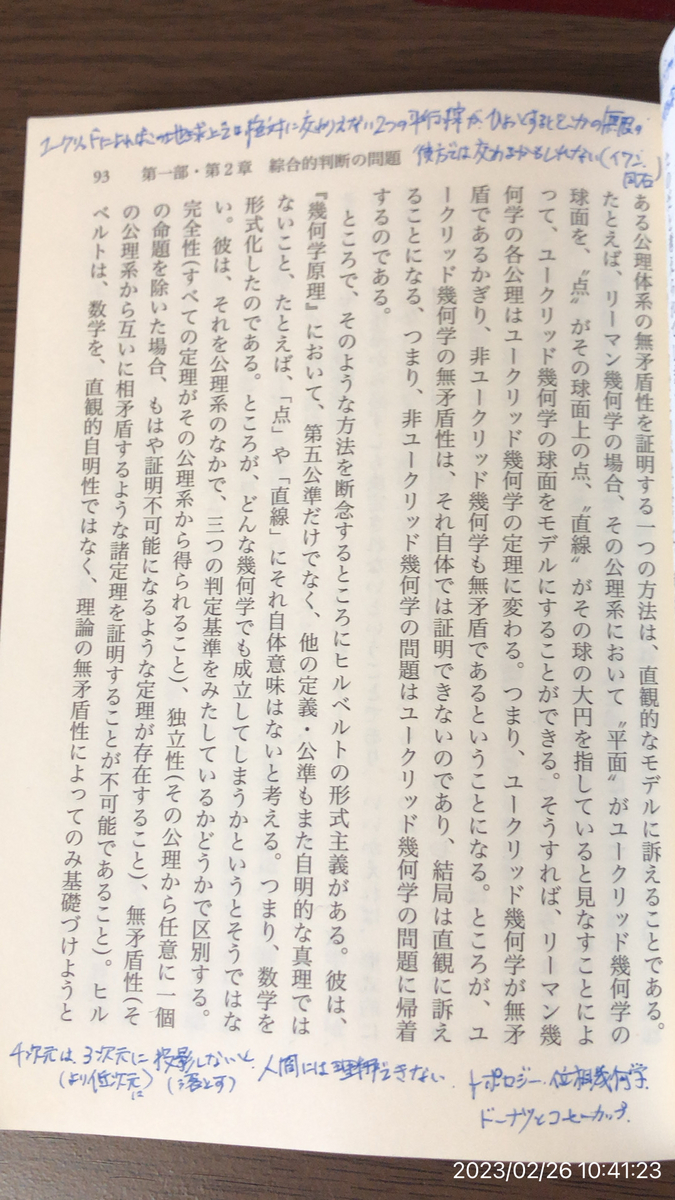 ユークリッドによればこの地球上では絶対に交わりえない2つの平行線が、ひょっとするとどこかの無限の
彼方では交わるかもしれない(イワン、
同右)
93 第一部・第2章 綜合的判断の問題
ある公理体系の無矛盾性を証明する一つの方法は、直観的なモデルに訴えることである。
たとえば、リーマン幾何学の場合、その公理系において〝平面〟がユークリッド幾何学の
球面を、〝点〟がその球面上の点、〝直線〟がその球の大円を指していると見なすことによ
って、ユークリッド幾何学の球面をモデルにすることができる。そうすれば、リーマン幾
何学の各公理はユークリッド幾何学の定理に変わる。つまり、ユークリッド幾何学が無矛
盾であるかぎり、非ユークリッド幾何学も無矛盾であるということになる。ところが、ユ
ークリッド幾何学の無矛盾性は、それ自体では証明できないのであり、結局は直観に訴え
ることになる、つまり、非ユークリッド幾何学の問題はユークリッド幾何学の問題に帰着
するのである。
ところで、そのような方法を断念するところにヒルベルトの形式主義がある。彼は、
『幾何学原理』において、第五公準だけでなく、他の定義・公準もまた自明的な真理では
ないこと、たとえば、「点」や「直線」にそれ自体意味はないと考える。つまり、数学を
形式化したのである。ところが、どんな幾何学でも成立してしまうかというとそうではな
い。彼は、それを公理系のなかで、三つの判定基準をみたしているかどうかで区別する。
完全性(すべての定理がその公理系から得られること)、独立性(その公理から任意に一個
の命題を除いた場合、もはや証明不可能になるような定理が存在すること)、無矛盾性(そ
の公理系から互いに相矛盾するような諸定理を証明することが不可能であること)。ヒル
ベルトは、数学を、直観的自明性ではなく、理論の無矛盾性によってのみ基礎づけようと
4次元は、3次元に投影しないと人間には理解できない.
(より低次元に) (落とす)
トポロジー・位相幾何学
ドーナツとコーヒーカップ.
2023/02/26 10:41:23